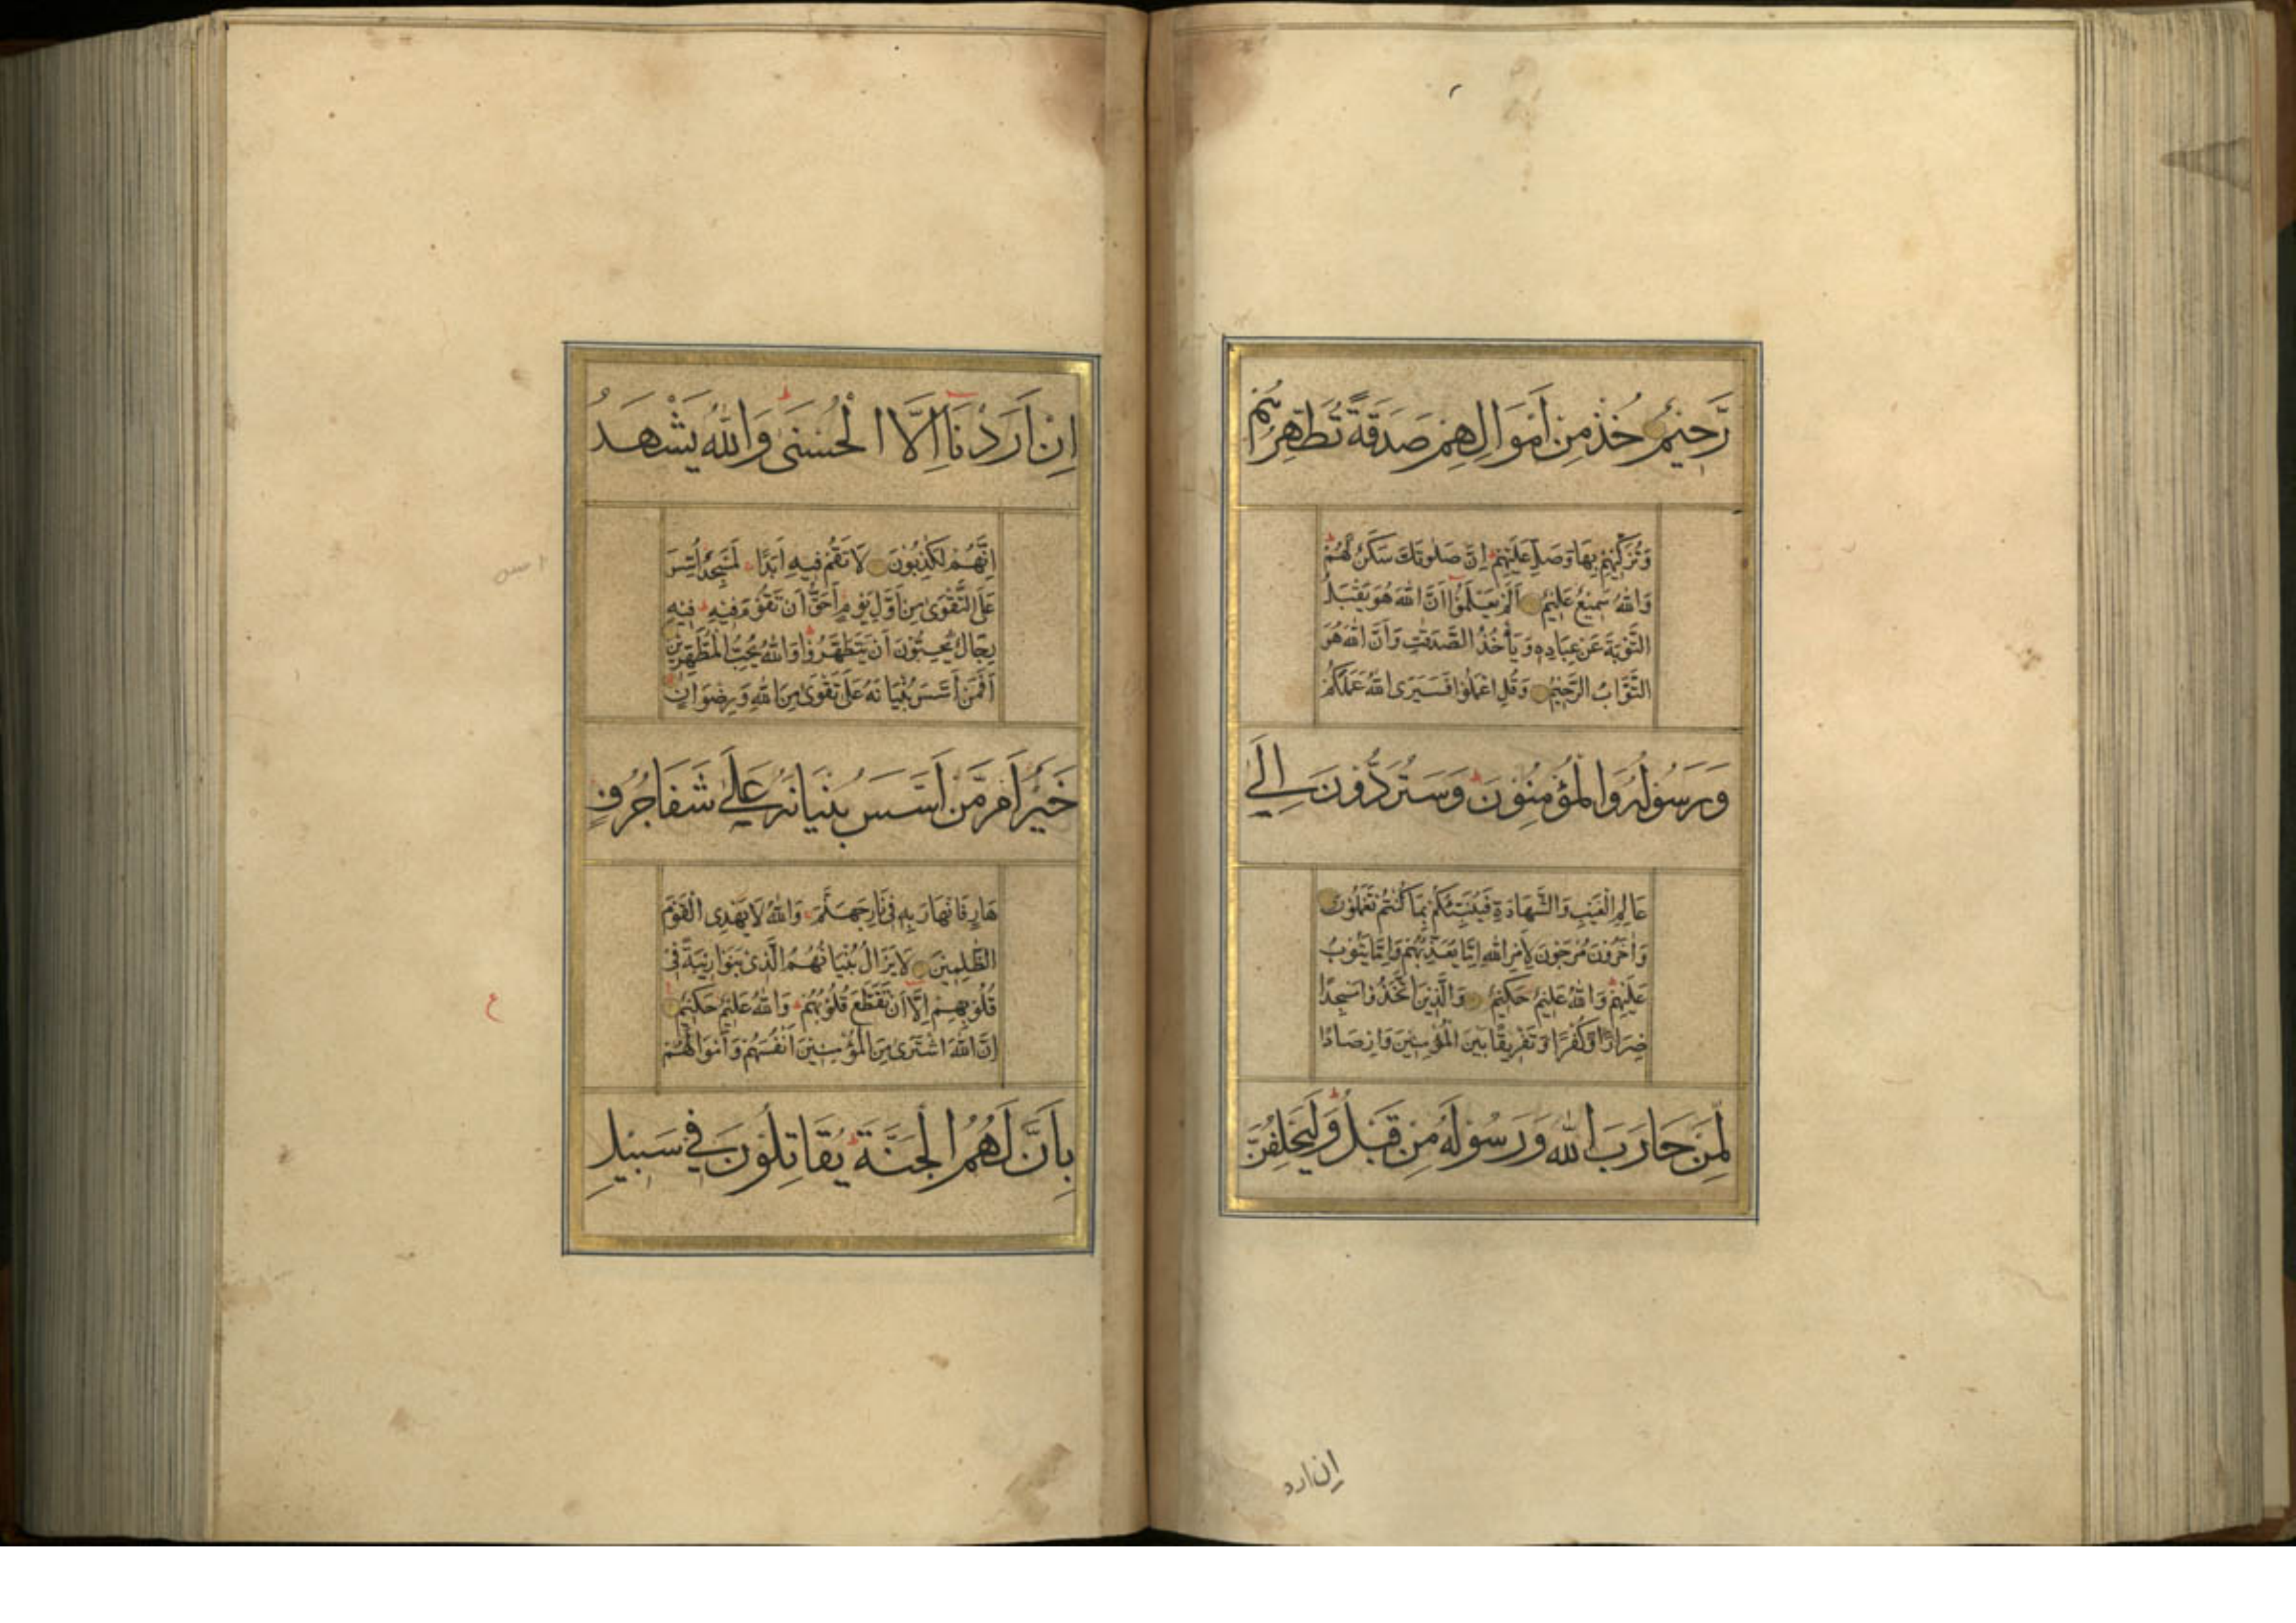 رَّحِيْمٌ خُذْ مِنْ اَمْوَالِهِمْ صَدَقَةً تُطَهِّرُهُمْ
وَتُزَكِّيْهِمْ بِهَا وَصَلِّ عَلَيْهِمْ اِنَّ صَلٰوتَكَ سَكَنٌ لَّهُمْ
وَاللّٰهُ سَمِيْعٌ عَلِيْمٌ اَلَمْ يَعْلَمُوْا اَنَّ اللّٰهَ هُوَ يَقْبَلُ
التَّوْبَةَ عَنْ عِبَادِهِ وَيَأْخُذُ الصَّدَقٰتِ وَاَنَّ اللّٰهَ هُوَ
التَّوَّابُ الرَّحِيْمُ وَقُلِ اعْمَلُوْا فَسَيَرَى اللّٰهُ عَمَلَكُمْ
وَرَسُوْلُهُ وَالْمُؤْمِنُوْنَ وَسَتُرَدُّوْنَ اِلٰى
عَالِمِ الْغَيْبِ وَالشَّهَادَةِ فَيُنَبِّئُكُمْ بِمَا كُنْتُمْ تَعْمَلُوْنَ
وَاٰخَرُوْنَ مُرْجَوْنَ لِاَمْرِ اللّٰهِ اِمَّا يُعَذِّبُهُمْ وَاِمَّا يَتُوْبُ
عَلَيْهِمْ وَاللّٰهُ عَلِيْمٌ حَكِيْمٌ وَالَّذِيْنَ اتَّخَذُوْا مَسْجِدًا
ضِرَارًا وَّكُفْرًا وَّتَفْرِيْقًا بَيْنَ الْمُؤْمِنِيْنَ وَاِرْصَادًا
لِّمَنْ حَارَبَ اللّٰهَ وَرَسُوْلَهُ مِنْ قَبْلُ وَلَيَحْلِفُنَّ
ان ارد
اِنْ اَرَدْنَا اِلَّا الْحُسْنٰى وَاللّٰهُ يَشْهَدُ
اِنَّهُمْ لَكٰذِبُوْنَ لَا تَقُمْ فِيْهِ اَبَدًا لَمَسْجِدٌ اُسِّسَ
عَلَى التَّقْوٰى مِنْ اَوَّلِ يَوْمٍ اَحَقُّ اَنْ تَقُوْمَ فِيْهِ فِيْهِ
رِجَالٌ يُّحِبُّوْنَ اَنْ يَتَطَهَّرُوْا وَاللّٰهُ يُحِبُّ الْمُطَّهِّرِيْنَ
اَفَمَنْ اَسَّسَ بُنْيَانَهُ عَلٰى تَقْوٰى مِنَ اللّٰهِ وَرِضْوَانٍ
خَيْرٌ اَمْ مَّنْ اَسَّسَ بُنْيَانَهُ عَلٰى شَفَا جُرُفٍ
هَارٍ فَانْهَارَ بِهِ فِيْ نَارِ جَهَنَّمَ وَاللّٰهُ لَا يَهْدِى الْقَوْمَ
الظّٰلِمِيْنَ لَا يَزَالُ بُنْيَانُهُمُ الَّذِىْ بَنَوْا رِيْبَةً فِىْ
قُلُوْبِهِمْ اِلَّا اَنْ تَقَطَّعَ قُلُوْبُهُمْ وَاللّٰهُ عَلِيْمٌ حَكِيْمٌ
اِنَّ اللّٰهَ اشْتَرٰى مِنَ الْمُؤْمِنِيْنَ اَنْفُسَهُمْ وَاَمْوَالَهُمْ
بِاَنَّ لَهُمُ الْجَنَّةَ يُقَاتِلُوْنَ فِيْ سَبِيْلِ
ع